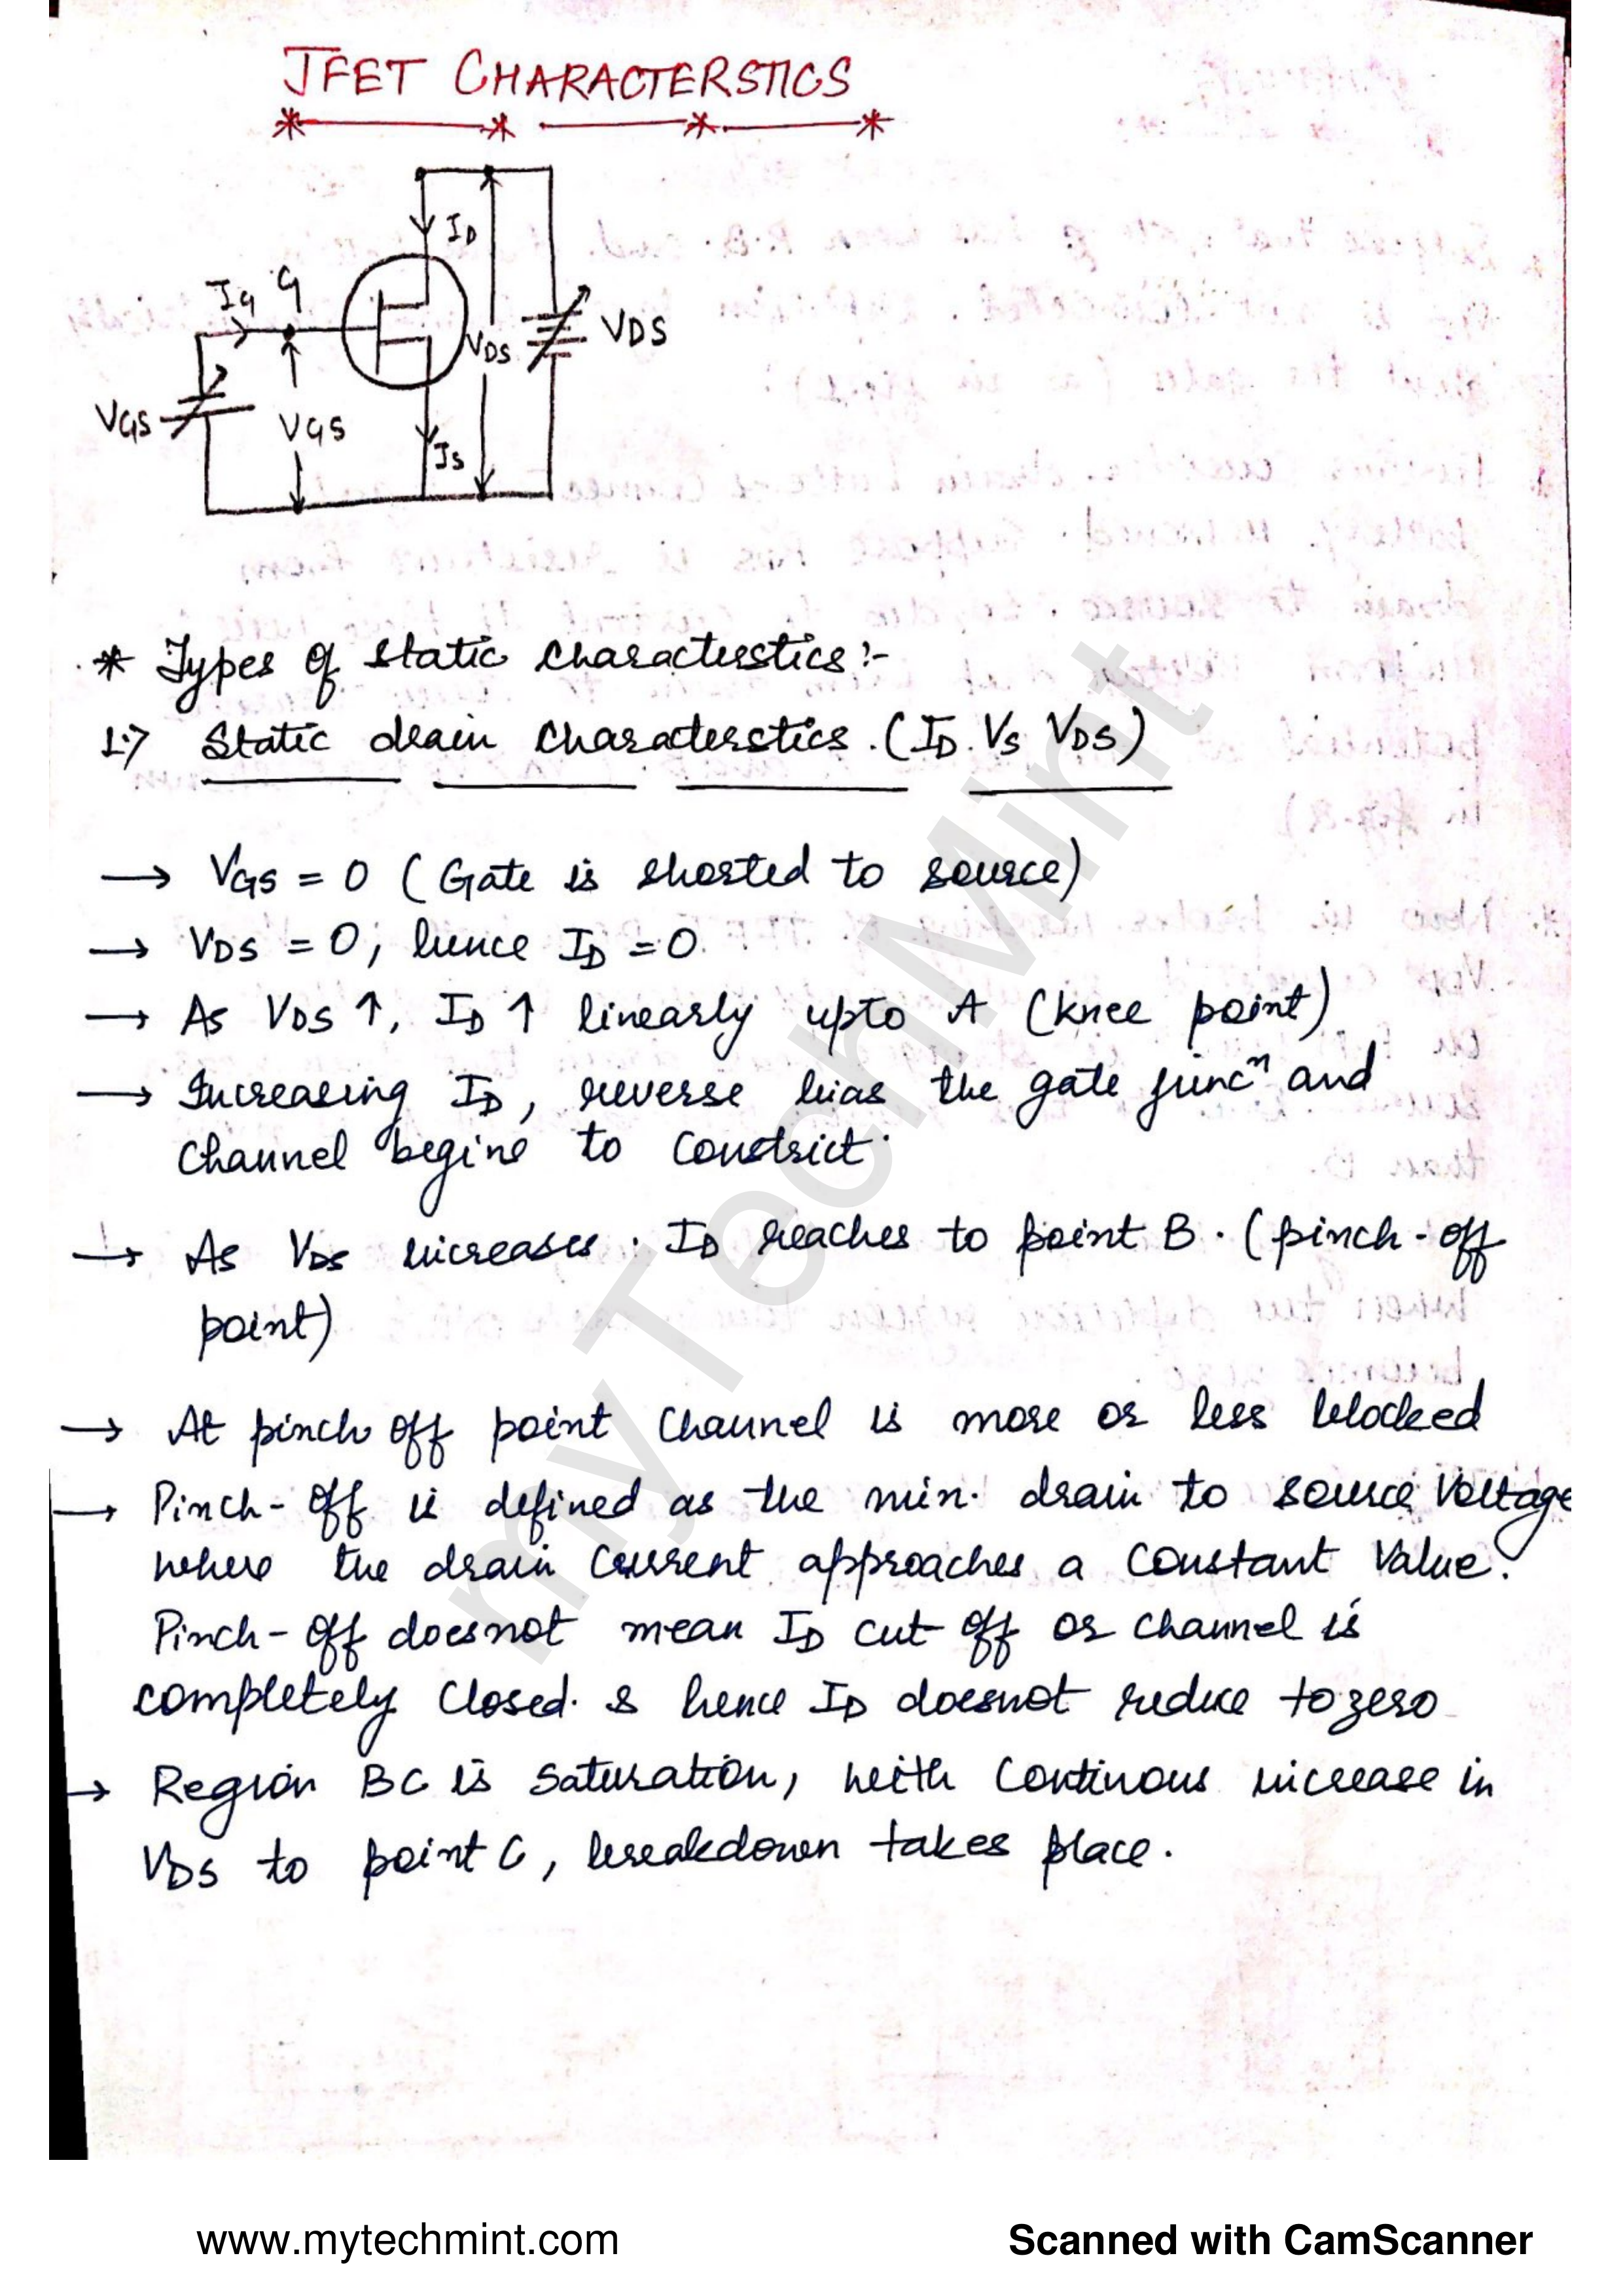 JFET CHARACTERSTICS
ID
IG G
VDS VDS
VGS VGS
IS
* Types of static characterstics :-
1.> Static drain characterstics. (ID. Vs VDS)
→ VGS = 0 (Gate is shorted to source)
→ VDS = 0, hence ID = 0.
→ As VDS ↑, ID ↑ linearly upto A (knee point)
→ Increasing ID, reverse bias the gate juncⁿ and
channel begins to constrict.
→ As VDS increases. ID reaches to point B. (pinch-off
point)
→ At pinch off point channel is more or less blocked
→ Pinch-off is defined as the min. drain to source voltage
where the drain current approaches a constant value.
Pinch-off doesnot mean ID cut off or channel is
completely closed. & hence ID doesnot reduce to zero
→ Region BC is saturation, with continous increase in
VDS to point C, breakdown takes place.
myTechMint
www.mytechmint.com
Scanned with CamScanner